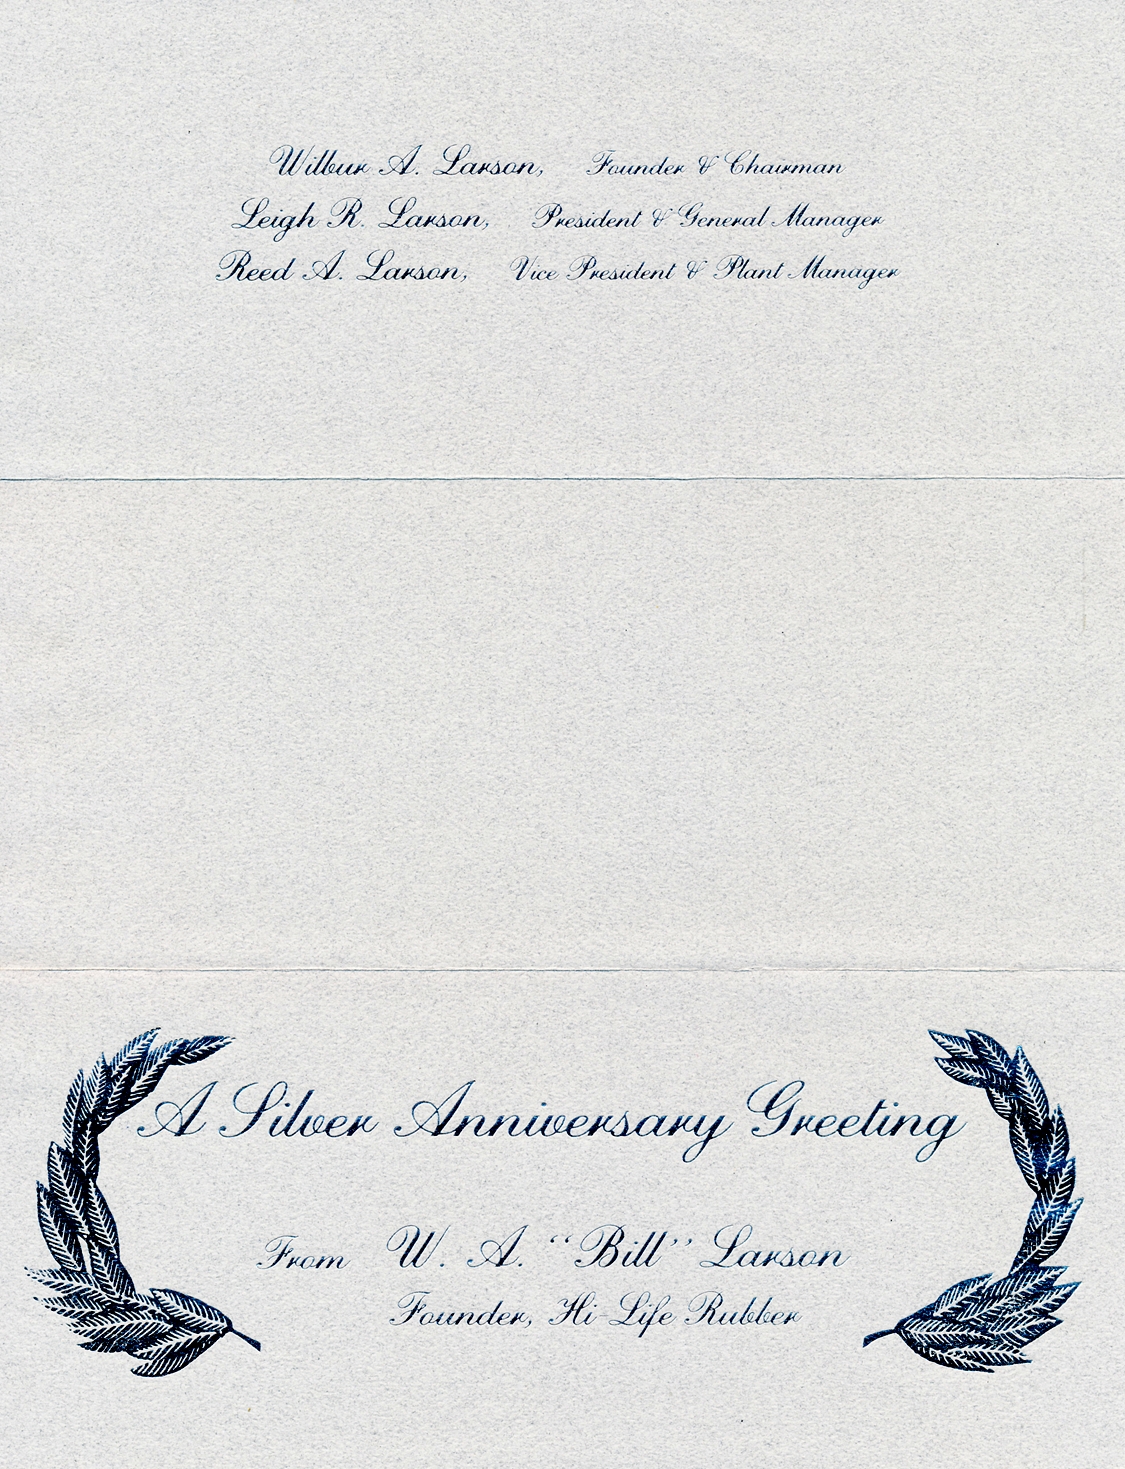 Wilbur A. Larson, Founder & Chairman
Leigh R. Larson, President & General Manager
Reed A. Larson, Vice President & Plant Manager
A Silver Anniversary Greeting
From W. A. “Bill” Larson
Founder, Hi-Life Rubber